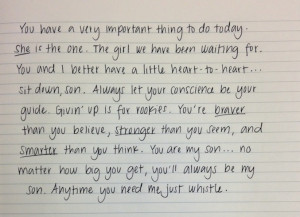 You have a very important thing to do today.
She is the one. The girl we have been waiting for.
You and I better have a little heart-to-heart...
sit down, son. Always let your conscience be your
guide. Givin' up is for rookies. You're braver
than you believe, stronger than you seem, and
smarter than you think. You are my son... no
matter how big you get, you'll always be my
son. Anytime you need me, just whistle.